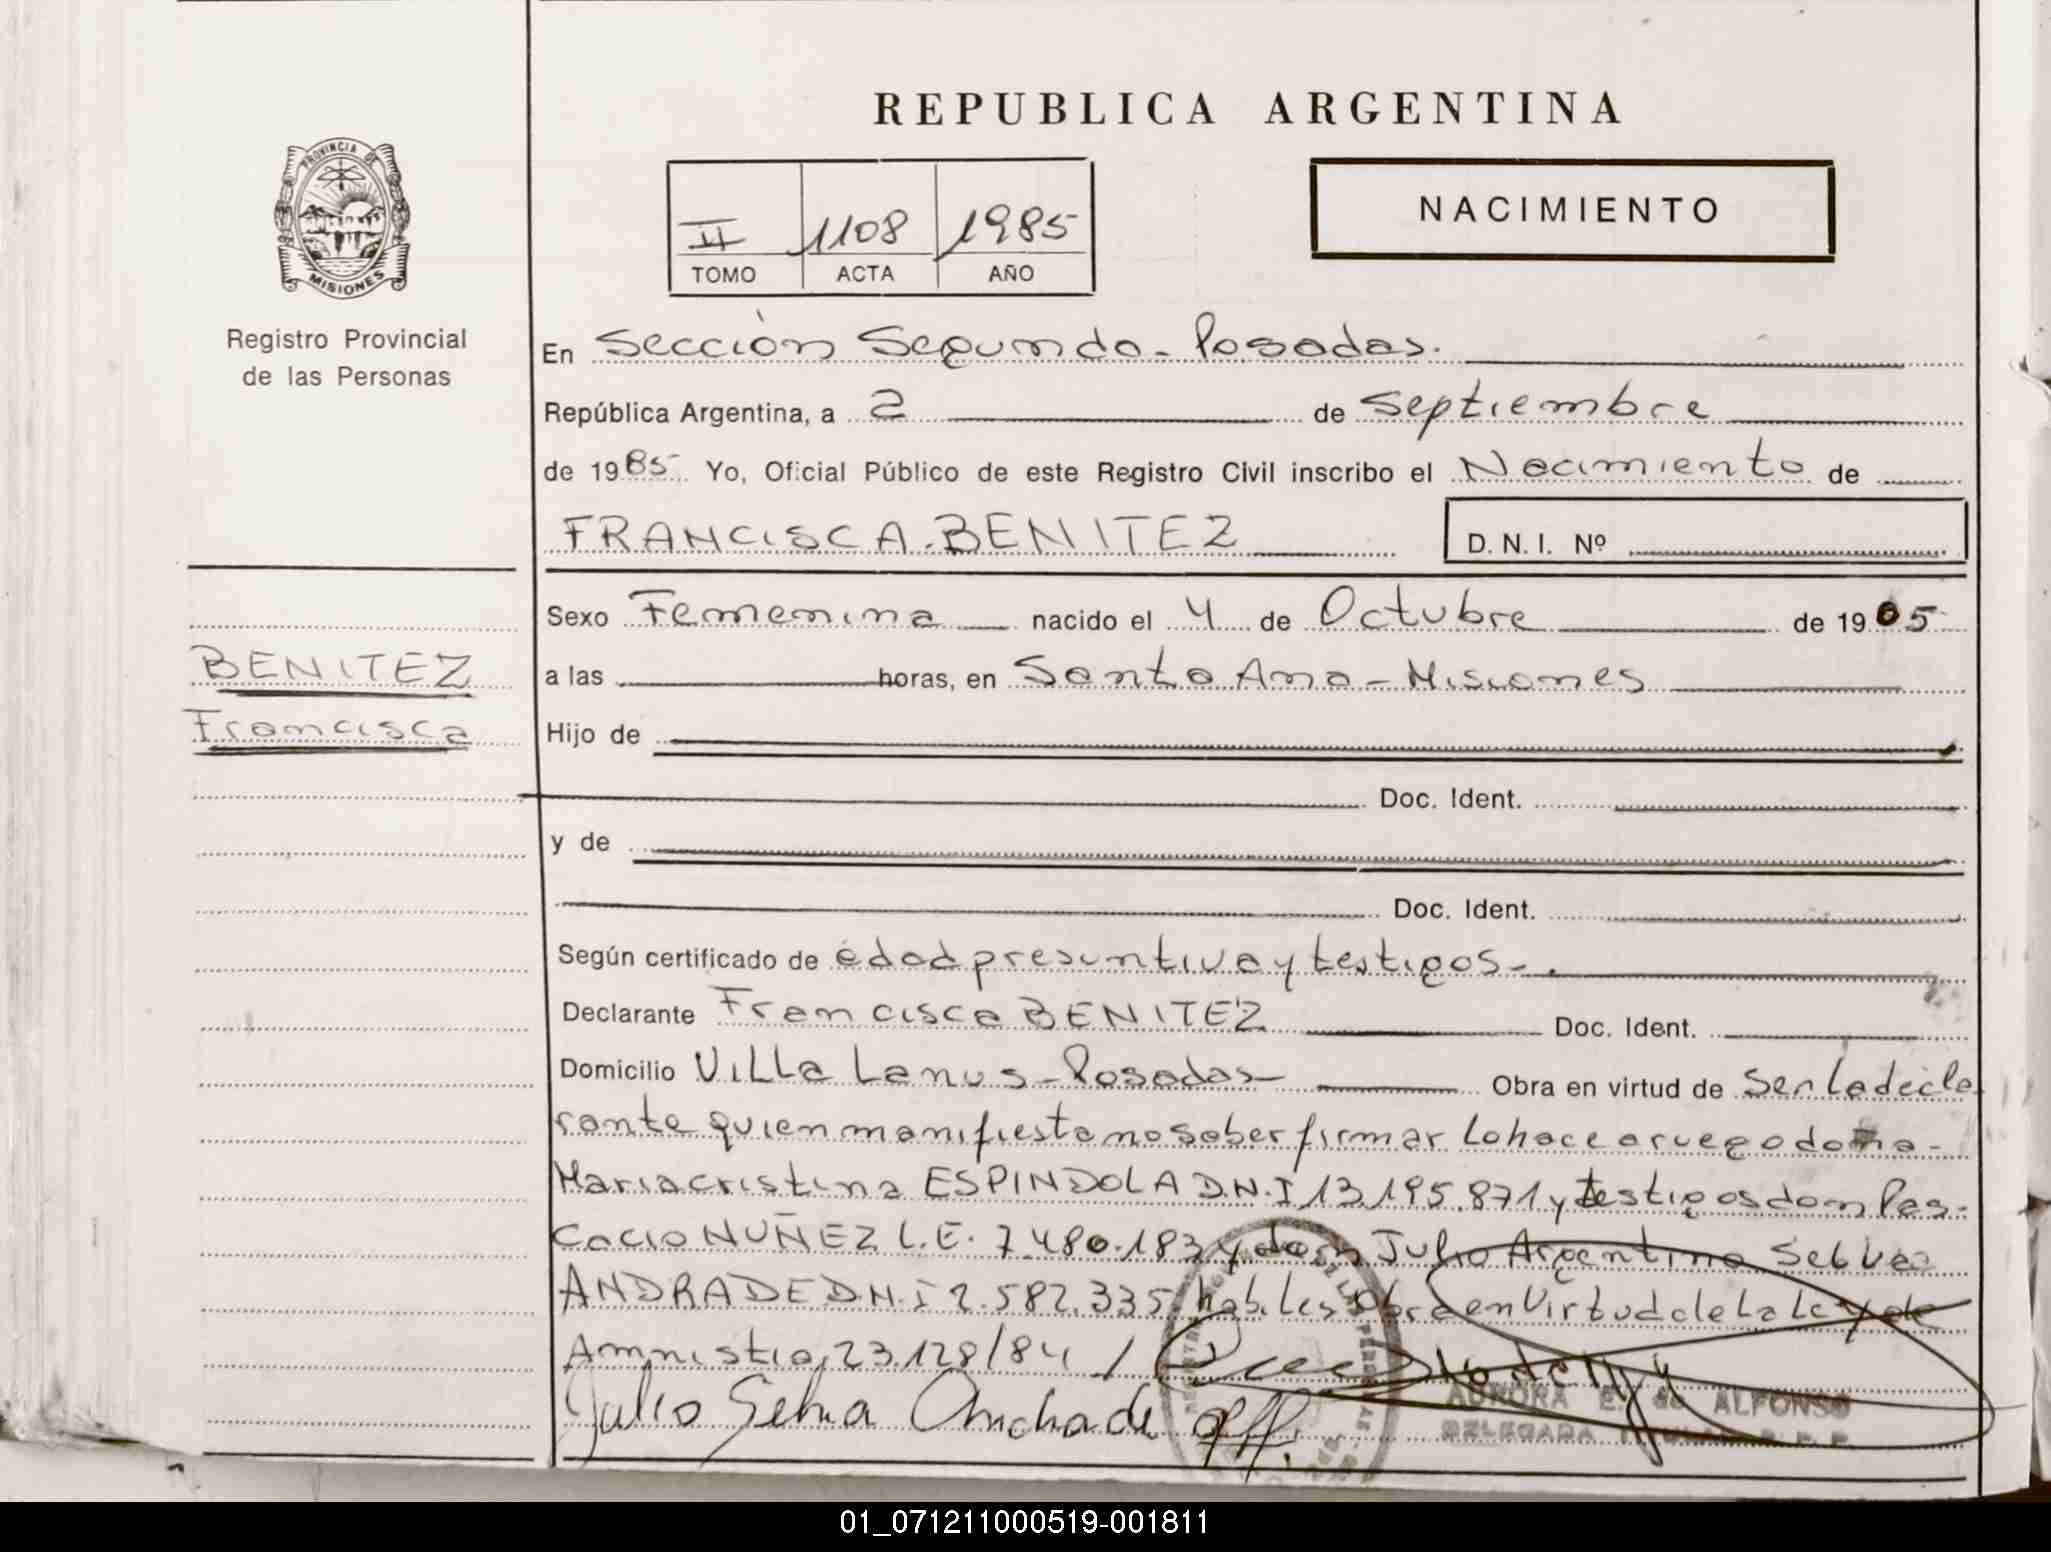 REPUBLICA ARGENTINA
PROVINCIA DE
MISIONES
Registro Provincial
de las Personas
II 1108 1985
TOMO ACTA AÑO
NACIMIENTO
En Sección Segunda - Posadas.
República Argentina, a 2 de Septiembre
de 1985 Yo, Oficial Público de este Registro Civil inscribo el Nacimiento de
FRANCISCA BENITEZ
D. N. I. Nº
BENITEZ
Francisca
Sexo Femenina nacido el 4 de Octubre de 1905
a las horas, en Santa Ana - Misiones
Hijo de
Doc. Ident.
y de
Doc. Ident.
Según certificado de edad presuntiva y testigos -.
Declarante Francisca BENITEZ Doc. Ident.
Domicilio Villa Lanus - Posadas - Obra en virtud de ser la decla
rante quien manifiesta no saber firmar lo hace a ruego doña -
Maria cristina ESPINDOLA D.N.I 13.195.871 y testigos don Pas-
cacio NUÑEZ L.E. 7.480.183 y don Julio Argentino Selva
ANDRADE D.N.I 2.582.335. habiles Obra en Virtud de la Ley de
Amnistia, 23.128/84 /
Julio Selva Andrade
AURORA E. de ALFONSO
DELEGADA TITULAR R. P. P.
01_071211000519-001811